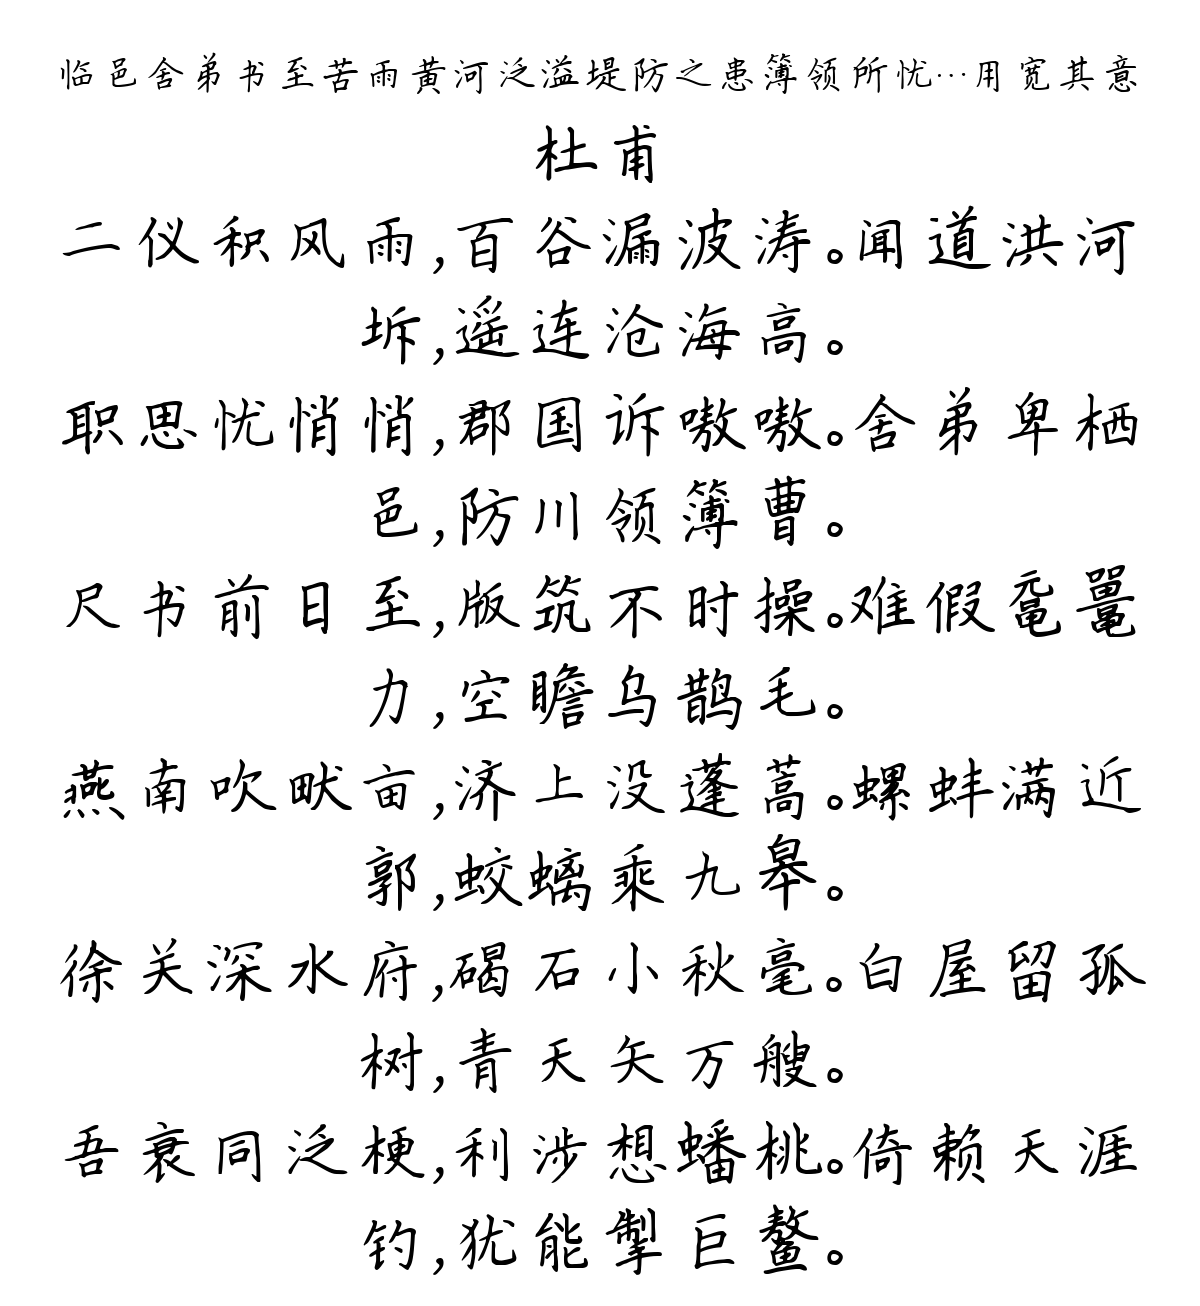 临邑舍弟书至苦雨黄河泛溢堤防之患簿领所忧…用宽其意
杜甫
二仪积风雨,百谷漏波涛。闻道洪河
坼,遥连沧海高。
职思忧悄悄,郡国诉嗷嗷。舍弟卑栖
邑,防川领簿曹。
尺书前日至,版筑不时操。难假鼋鼍
力,空瞻乌鹊毛。
燕南吹畎亩,济上没蓬蒿。螺蚌满近
郭,蛟螭乘九皋。
徐关深水府,碣石小秋毫。白屋留孤
树,青天矢万艘。
吾衰同泛梗,利涉想蟠桃。倚赖天涯
钓,犹能掣巨鳌。